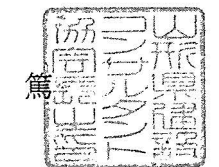 山形県建設
コンサルタント
協同
篤